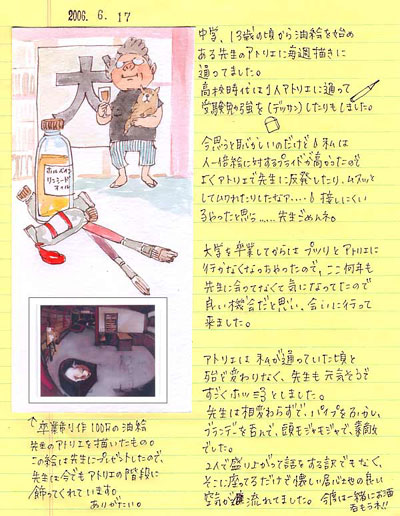 2006. 6. 17
中学、13歳の頃から油絵を始め
ある先生のアトリエに毎週描きに
通ってました。
高校時代は1人アトリエに通って
受験勉強を(デッサン)したりもしました。
今思うと恥ずかしいのだけど 私は
人一倍絵に対するプライドが高かったので
よくアトリエで先生に反発したり、ムスッと
してムクれたりしたなァ....接しにくい
子やったと思う......先生ごめんネ。
大学を卒業してからは プツリとアトリエに
行かなくなっちゃったので、ここ何年も
先生に会ってなくて気になってたので
良い機会だと思い、会いに行って
来ました。
アトリエは 私が通っていた頃と
殆ど変わりなく、先生も元気そうで
すごくホッとしました。
先生は相変わらずで、パイプをふかし、
ブランデーを呑んで、頭モジャモジャで、素敵
でした。
2人で盛り上がって話をする訳でもなく、
そこに座ってるだけで懐しい居心地の良い
空気が流れてました。今度は一緒にお酒
呑もうネ!!
大
ホルベイン
リンシード
オイル
↑卒業制作 100号の油絵
先生のアトリエを描いたもの。
この絵は先生にプレゼントしたので、
先生は今でもアトリエの階段に
飾ってくれています。
ありがたい。